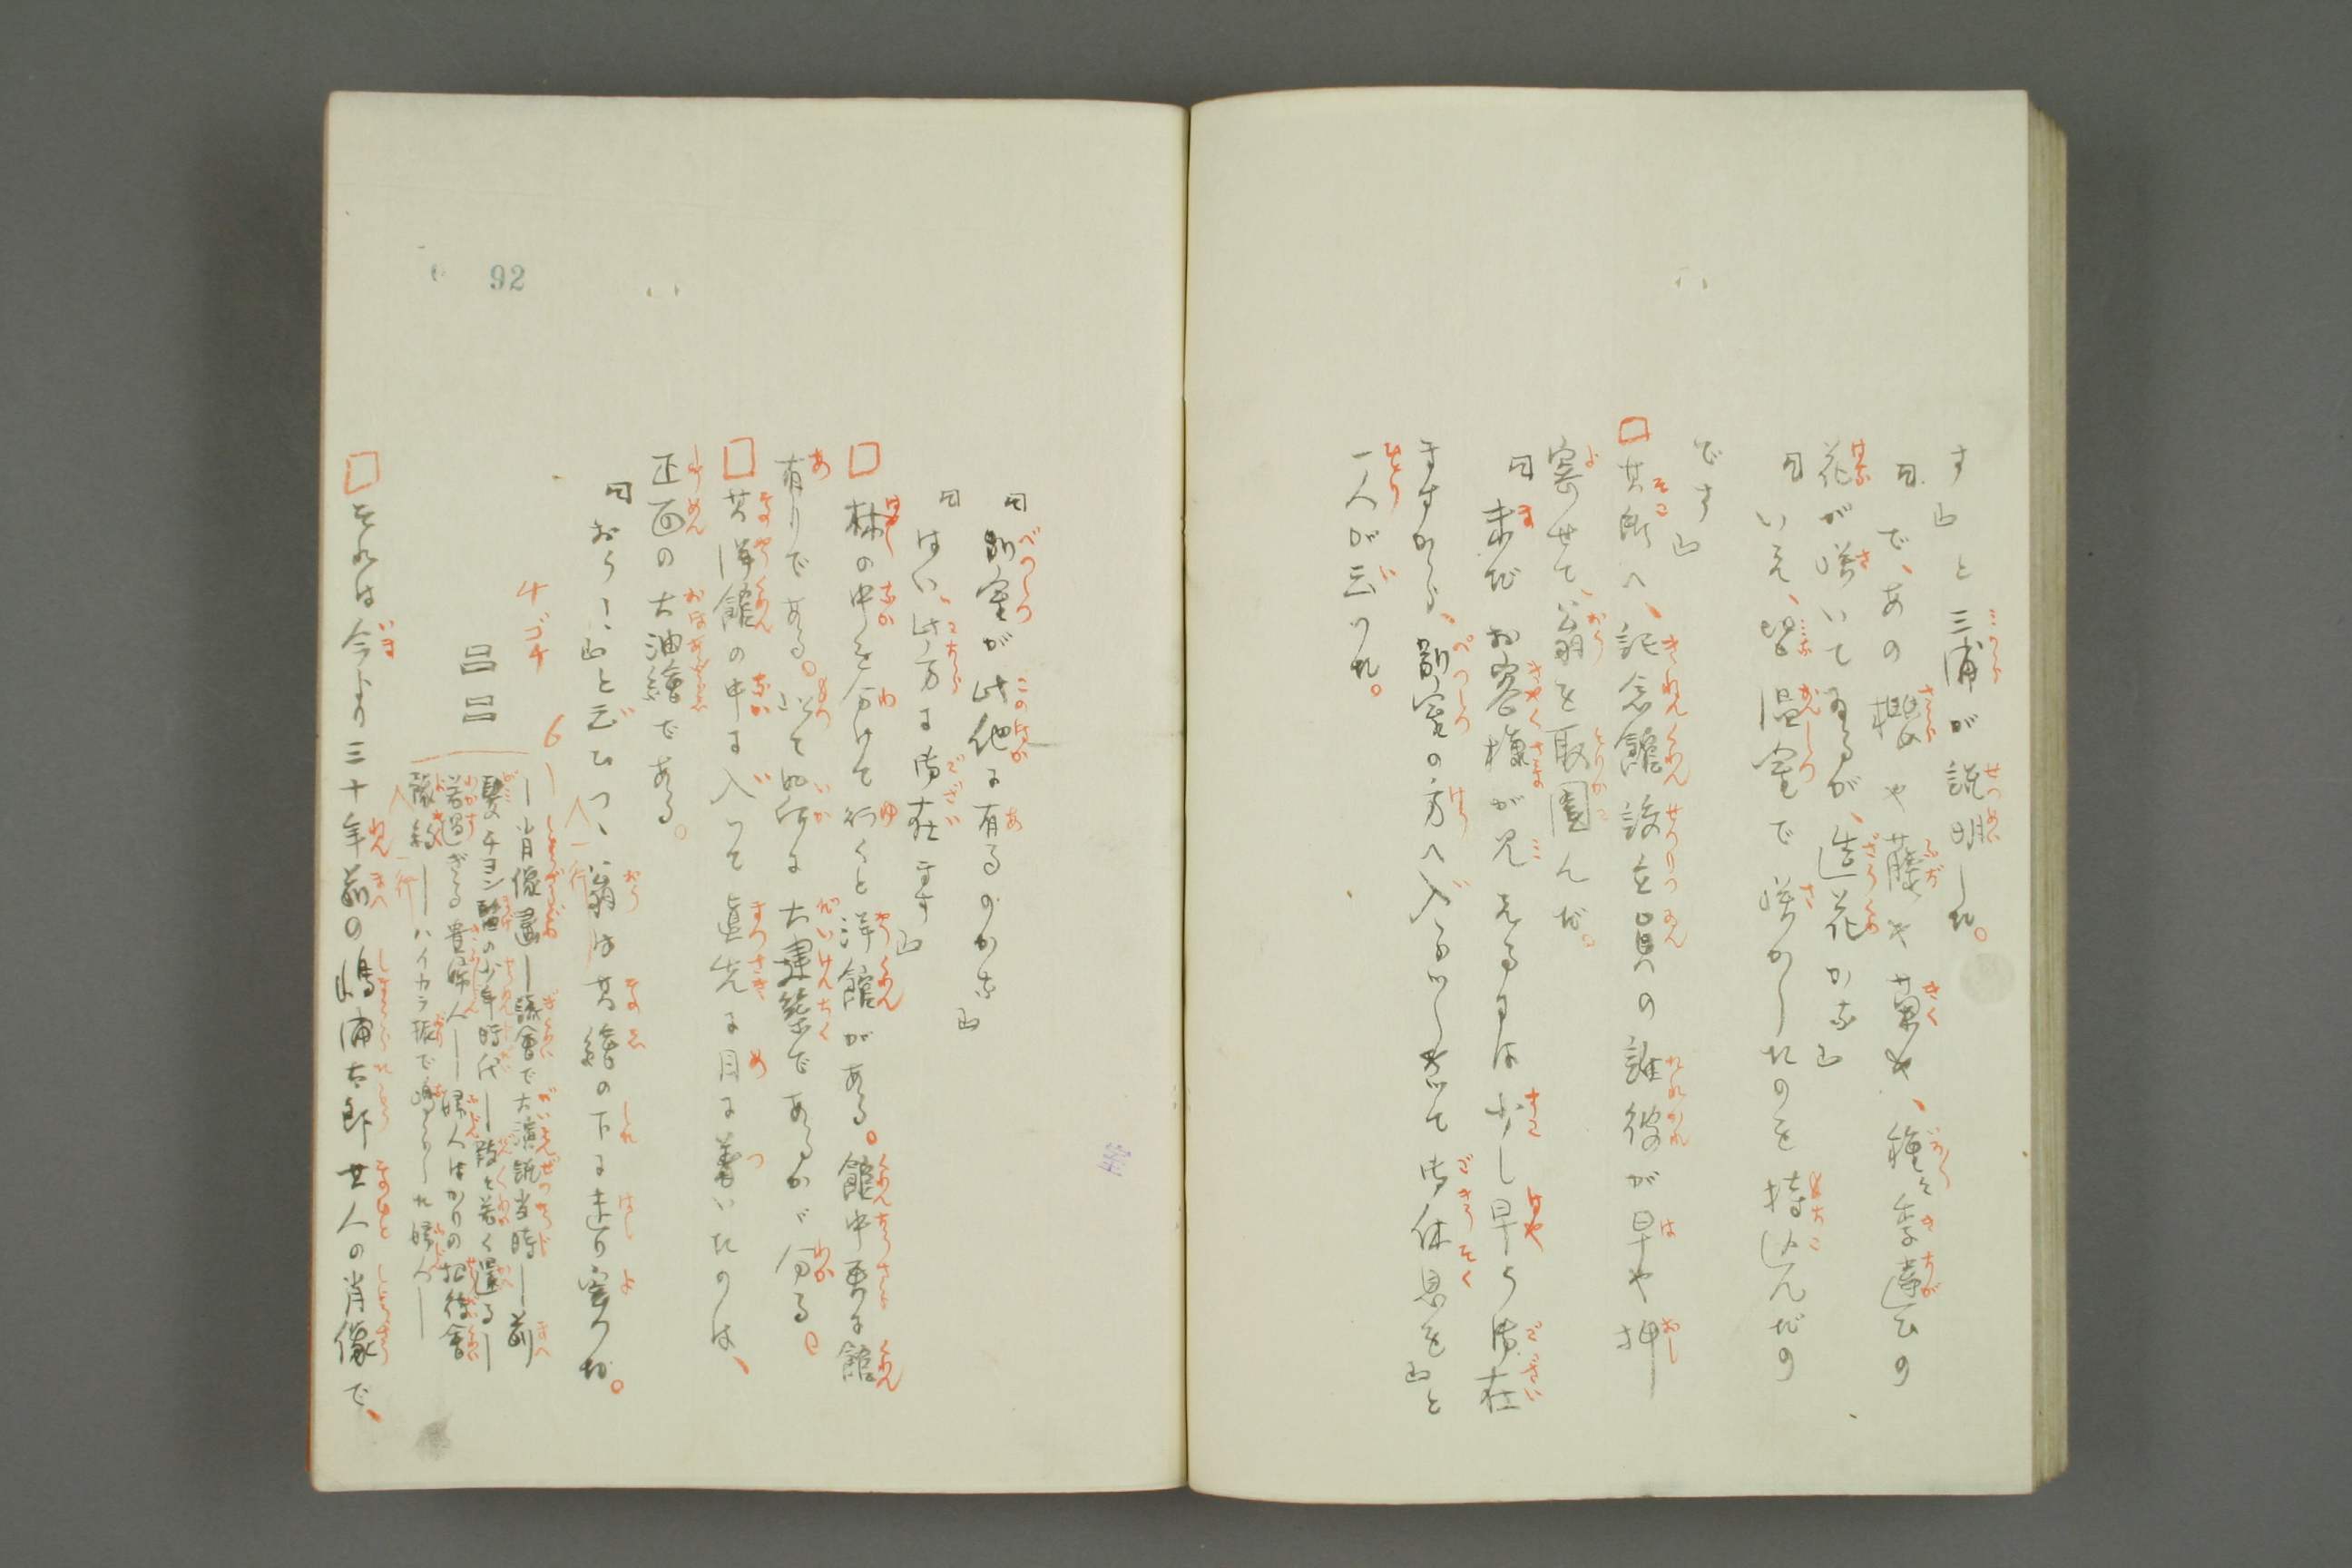 す」と三浦が説明した。
「で、あの櫻や藤や菊や、種々季違ひの
花が咲いて居るが、造花かな」
「いえ、皆温室で咲かしたのを持込んだの
です」
□其所へ、記念館設立員の誰彼が早や押
寄せて、翁を取圍んだ。
「未だお客様が見えるには少し早う御在
ますから、別室の方へ入らツしやいて御休息を」と
一人が云つた。
「別室が此他に有るのかな」
「はい、此方に御在ます」
□林の中を分けて行くと洋館がある。館中更に館
有りである。以て如何に大建築であるかゞ分る。
□其洋館の中に入つて眞先に目に着いたのは、
正面の大油繪である。
「おう！」と云ひつゝ、翁は其繪の下に走り寄つた。
4ゴチ
6
一行
―肖像畫―議會で大演説当時―前
髪チヨン髷の少年時代―段々若く還る―
若過ぎる貴婦人―婦人はかりの招待會
一行
―ハイカラ振で鳴らした婦人―
□それは今より三十年前の嶋浦太郎其人の肖像で、
92